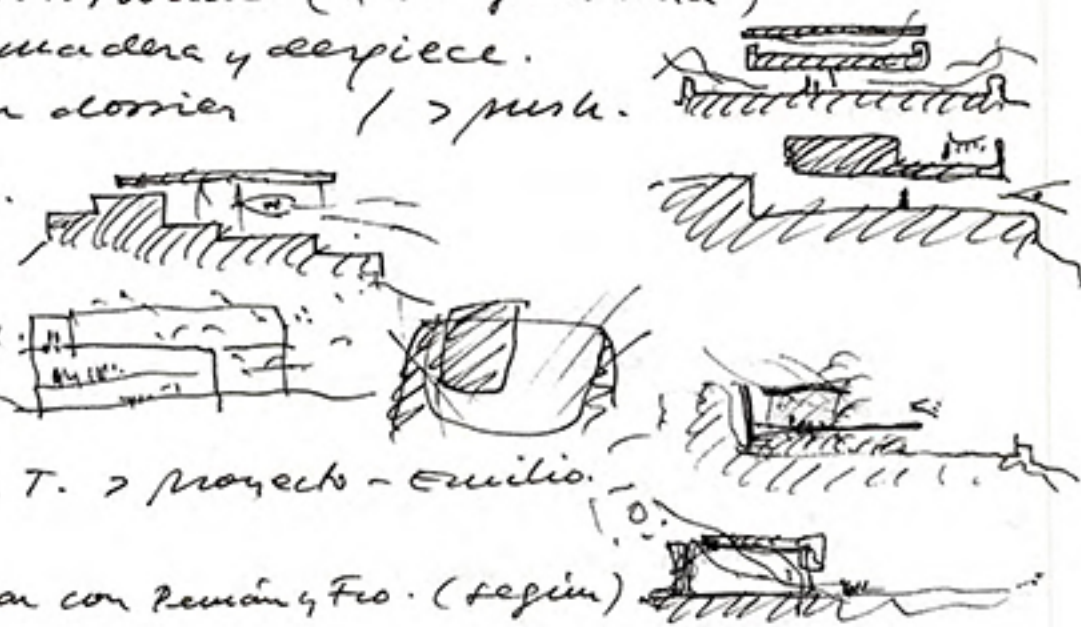 madera y despiece.
dossier / > push.
T. > proyecto - Emilio.
con Román y Fco. (según)